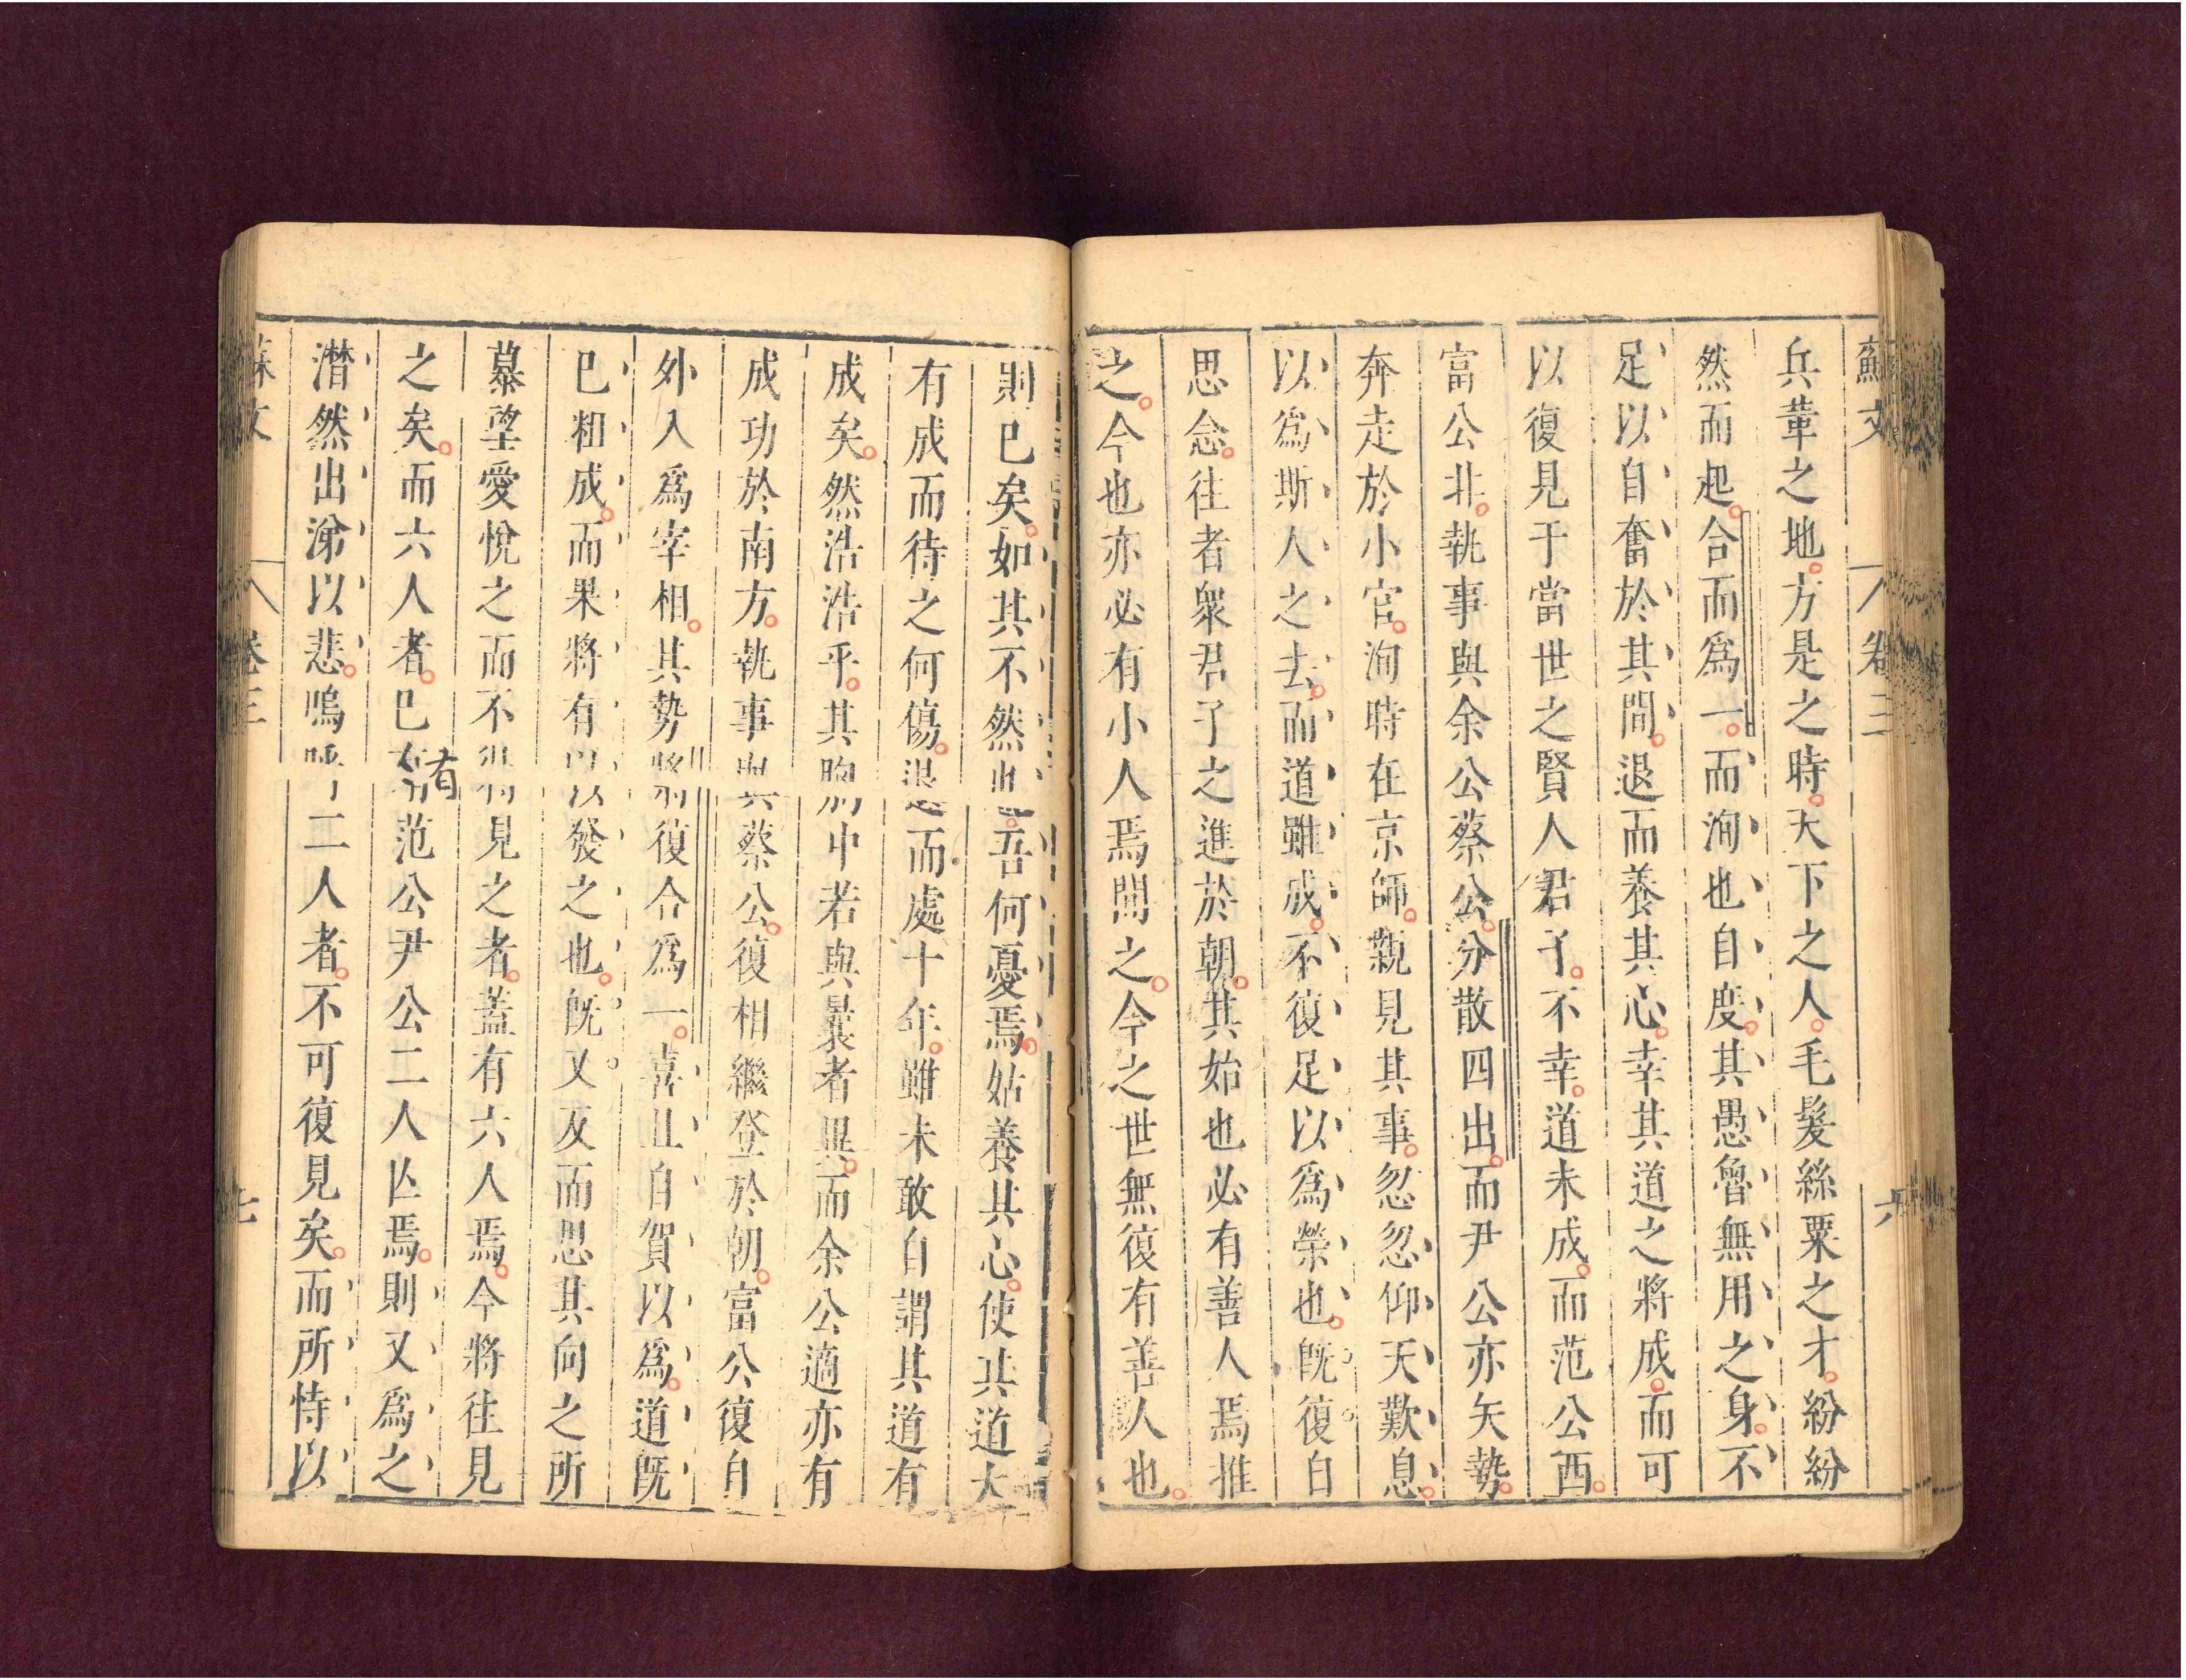 蘇文 卷三 六
兵革之地。方是之時。天下之人。毛髮絲粟之才。紛紛
然而起。合而爲一。而洵也自度。其愚魯無用之身。不
足以自奮於其間。退而養其心。幸其道之將成。而可
以復見于當世之賢人君子。不幸。道未成。而范公西。
富公北。執事與余公蔡公。分散四出。而尹公亦失勢。
奔走於小官。洵時在京師。親見其事。忽忽仰天歎息。
以爲斯人之去。而道雖成。不復足以爲榮也。旣復自
思念。往者衆君子之進於朝。其始也必有善人焉推
之。今也亦必有小人焉間之。今之世無復有善人也。
則已矣。如其不然也。吾何憂焉。姑養其心。使其道大
有成而待之何傷。退而處十年。雖未敢自謂其道有
成矣。然浩浩乎。其胸中若與曩者異。而余公適亦有
成功於南方。執事與蔡公。復相繼登於朝。富公復自
外入爲宰相。其勢將復合爲一。喜且自賀以爲。道旣
已粗成。而果將有以發之也。旣又反而思其向之所
慕望愛悅之而不得見之者。蓋有六人焉。今將往見
之矣。而六人者。已有范公尹公二人亾焉。則又爲之
潸然出涕以悲。嗚呼二人者。不可復見矣。而所恃以
蘇文 卷三 七